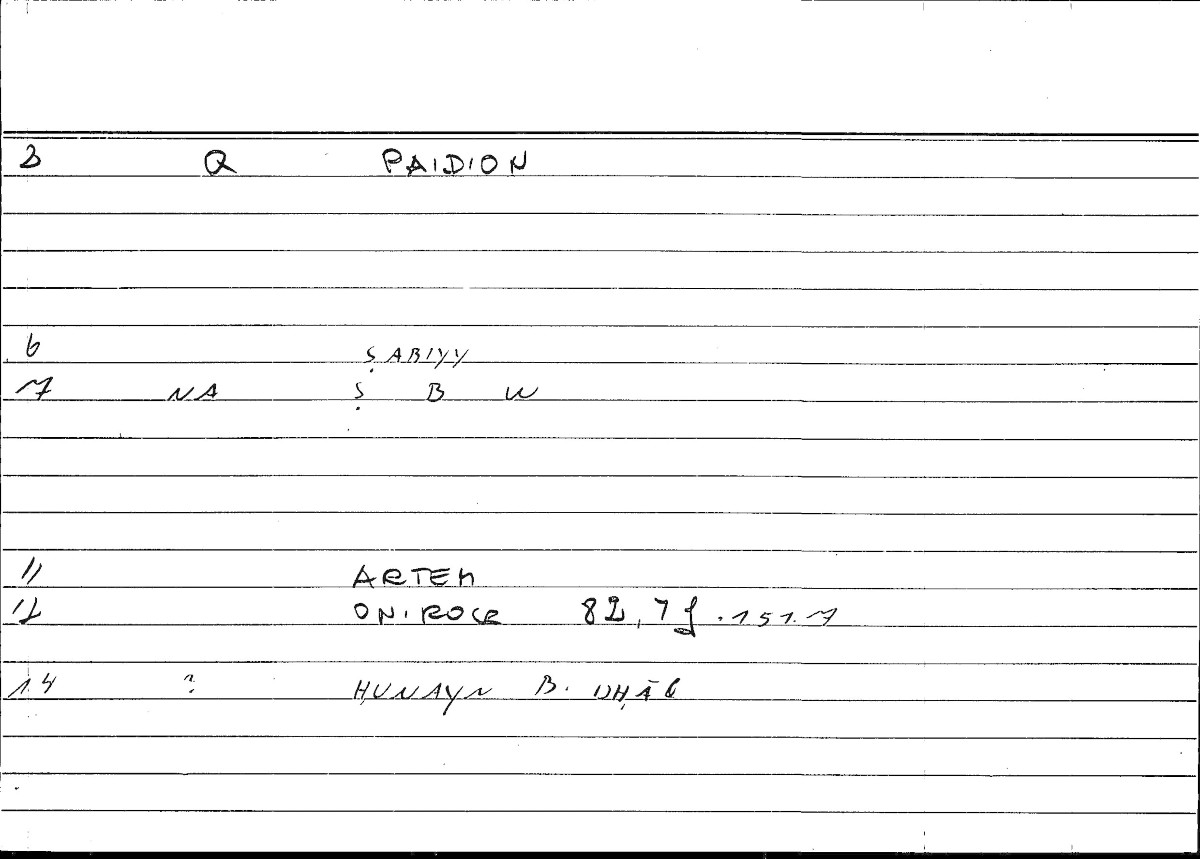 3 Q PAIDION
6 ṢABIYY
7 NA Ṣ B W
11 ARTEM
12 ONIROCR 82,7f.151.7
14 ? ḤUNAYN B.